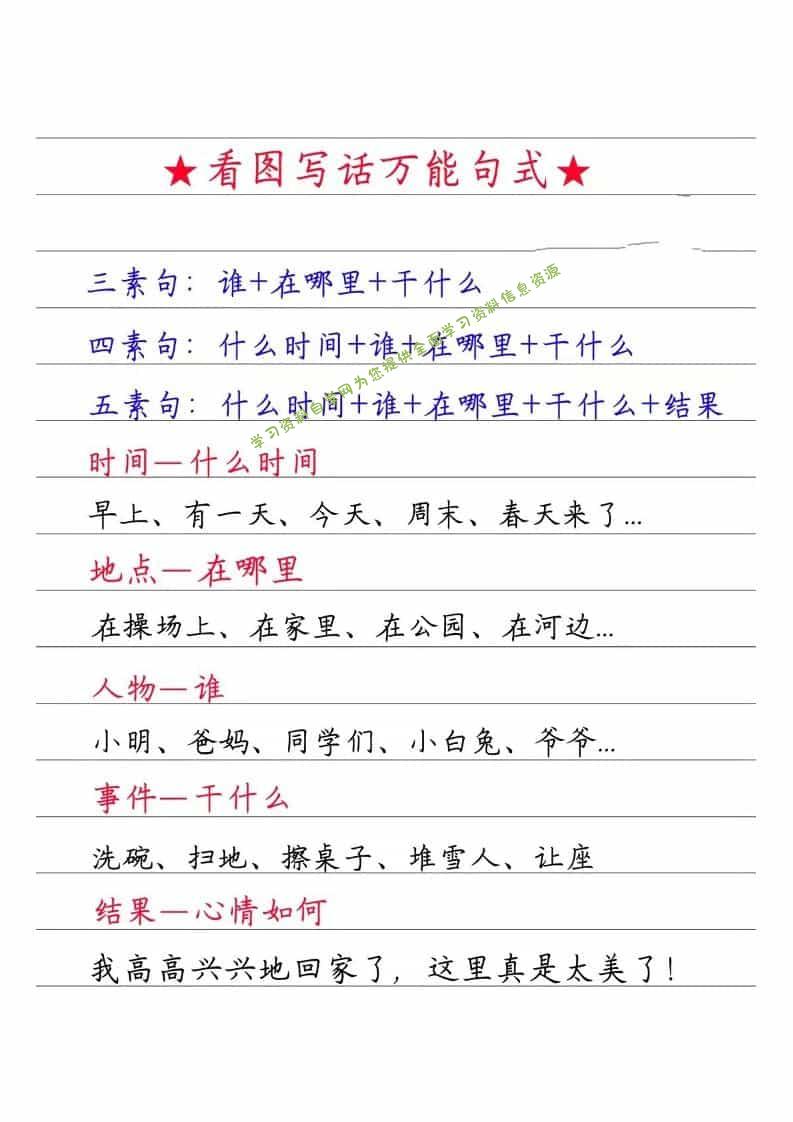 ★看图写话万能句式★
三素句：谁+在哪里+干什么
四素句：什么时间+谁+在哪里+干什么
五素句：什么时间+谁+在哪里+干什么+结果
学习资料自学网为您提供全面学习资料信息资源
时间—什么时间
早上、有一天、今天、周末、春天来了...
地点—在哪里
在操场上、在家里、在公园、在河边...
人物—谁
小明、爸妈、同学们、小白兔、爷爷...
事件—干什么
洗碗、扫地、擦桌子、堆雪人、让座
结果—心情如何
我高高兴兴地回家了，这里真是太美了！